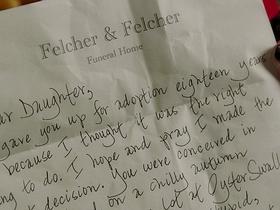 Felcher & Felcher
Funeral Home
ar Daughter,
gave you up for adoption eighteen years
because I thought it was the right
ng to do. I hope and pray I made the
t decision. You were conceived in
on a chilly autumn
lot at Oyster Swall